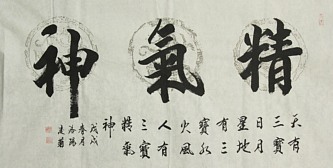 精氣神
天有
三寶
日月
星地
有三
寶水
火風
人有
三寶
精氣
神
戊戌
春月
洛陽